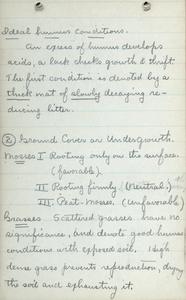 Ideal humus conditions.
An excess of humus develops
acids, a lack checks growth & thrift.
The first condition is denoted by a
thick mat of slowly decaying re-
ducing litter.
② Ground Cover or Undergrowth.
Mosses I Rooting only on the surface.
(favorable).
II Rooting firmly (Neutral)
III Peat-Mosses. (Unfavorable)
Grasses Scattered grasses have no
significance, and denote good humus
conditions with exposed soil. High
dense grass prevents reproduction, drying
the soil and exhausting it.